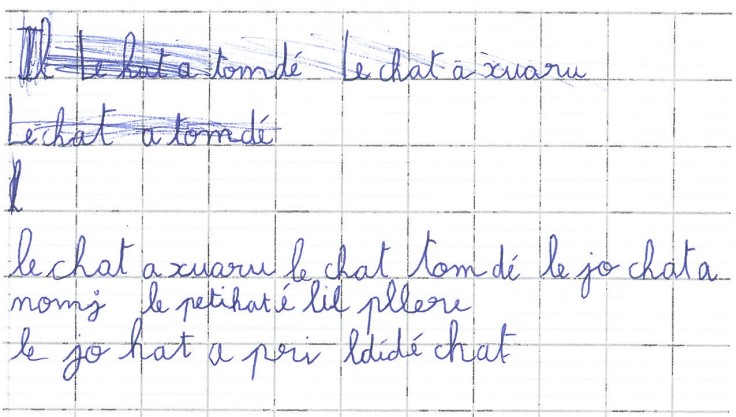 Le hat a tomdé Le chat a xuaru
Le chat a tomdé
le chat a xuaru le chat tomdé le jo chat a
nomj le petihat é lil pllere
le jo hat a pri ldidé chat